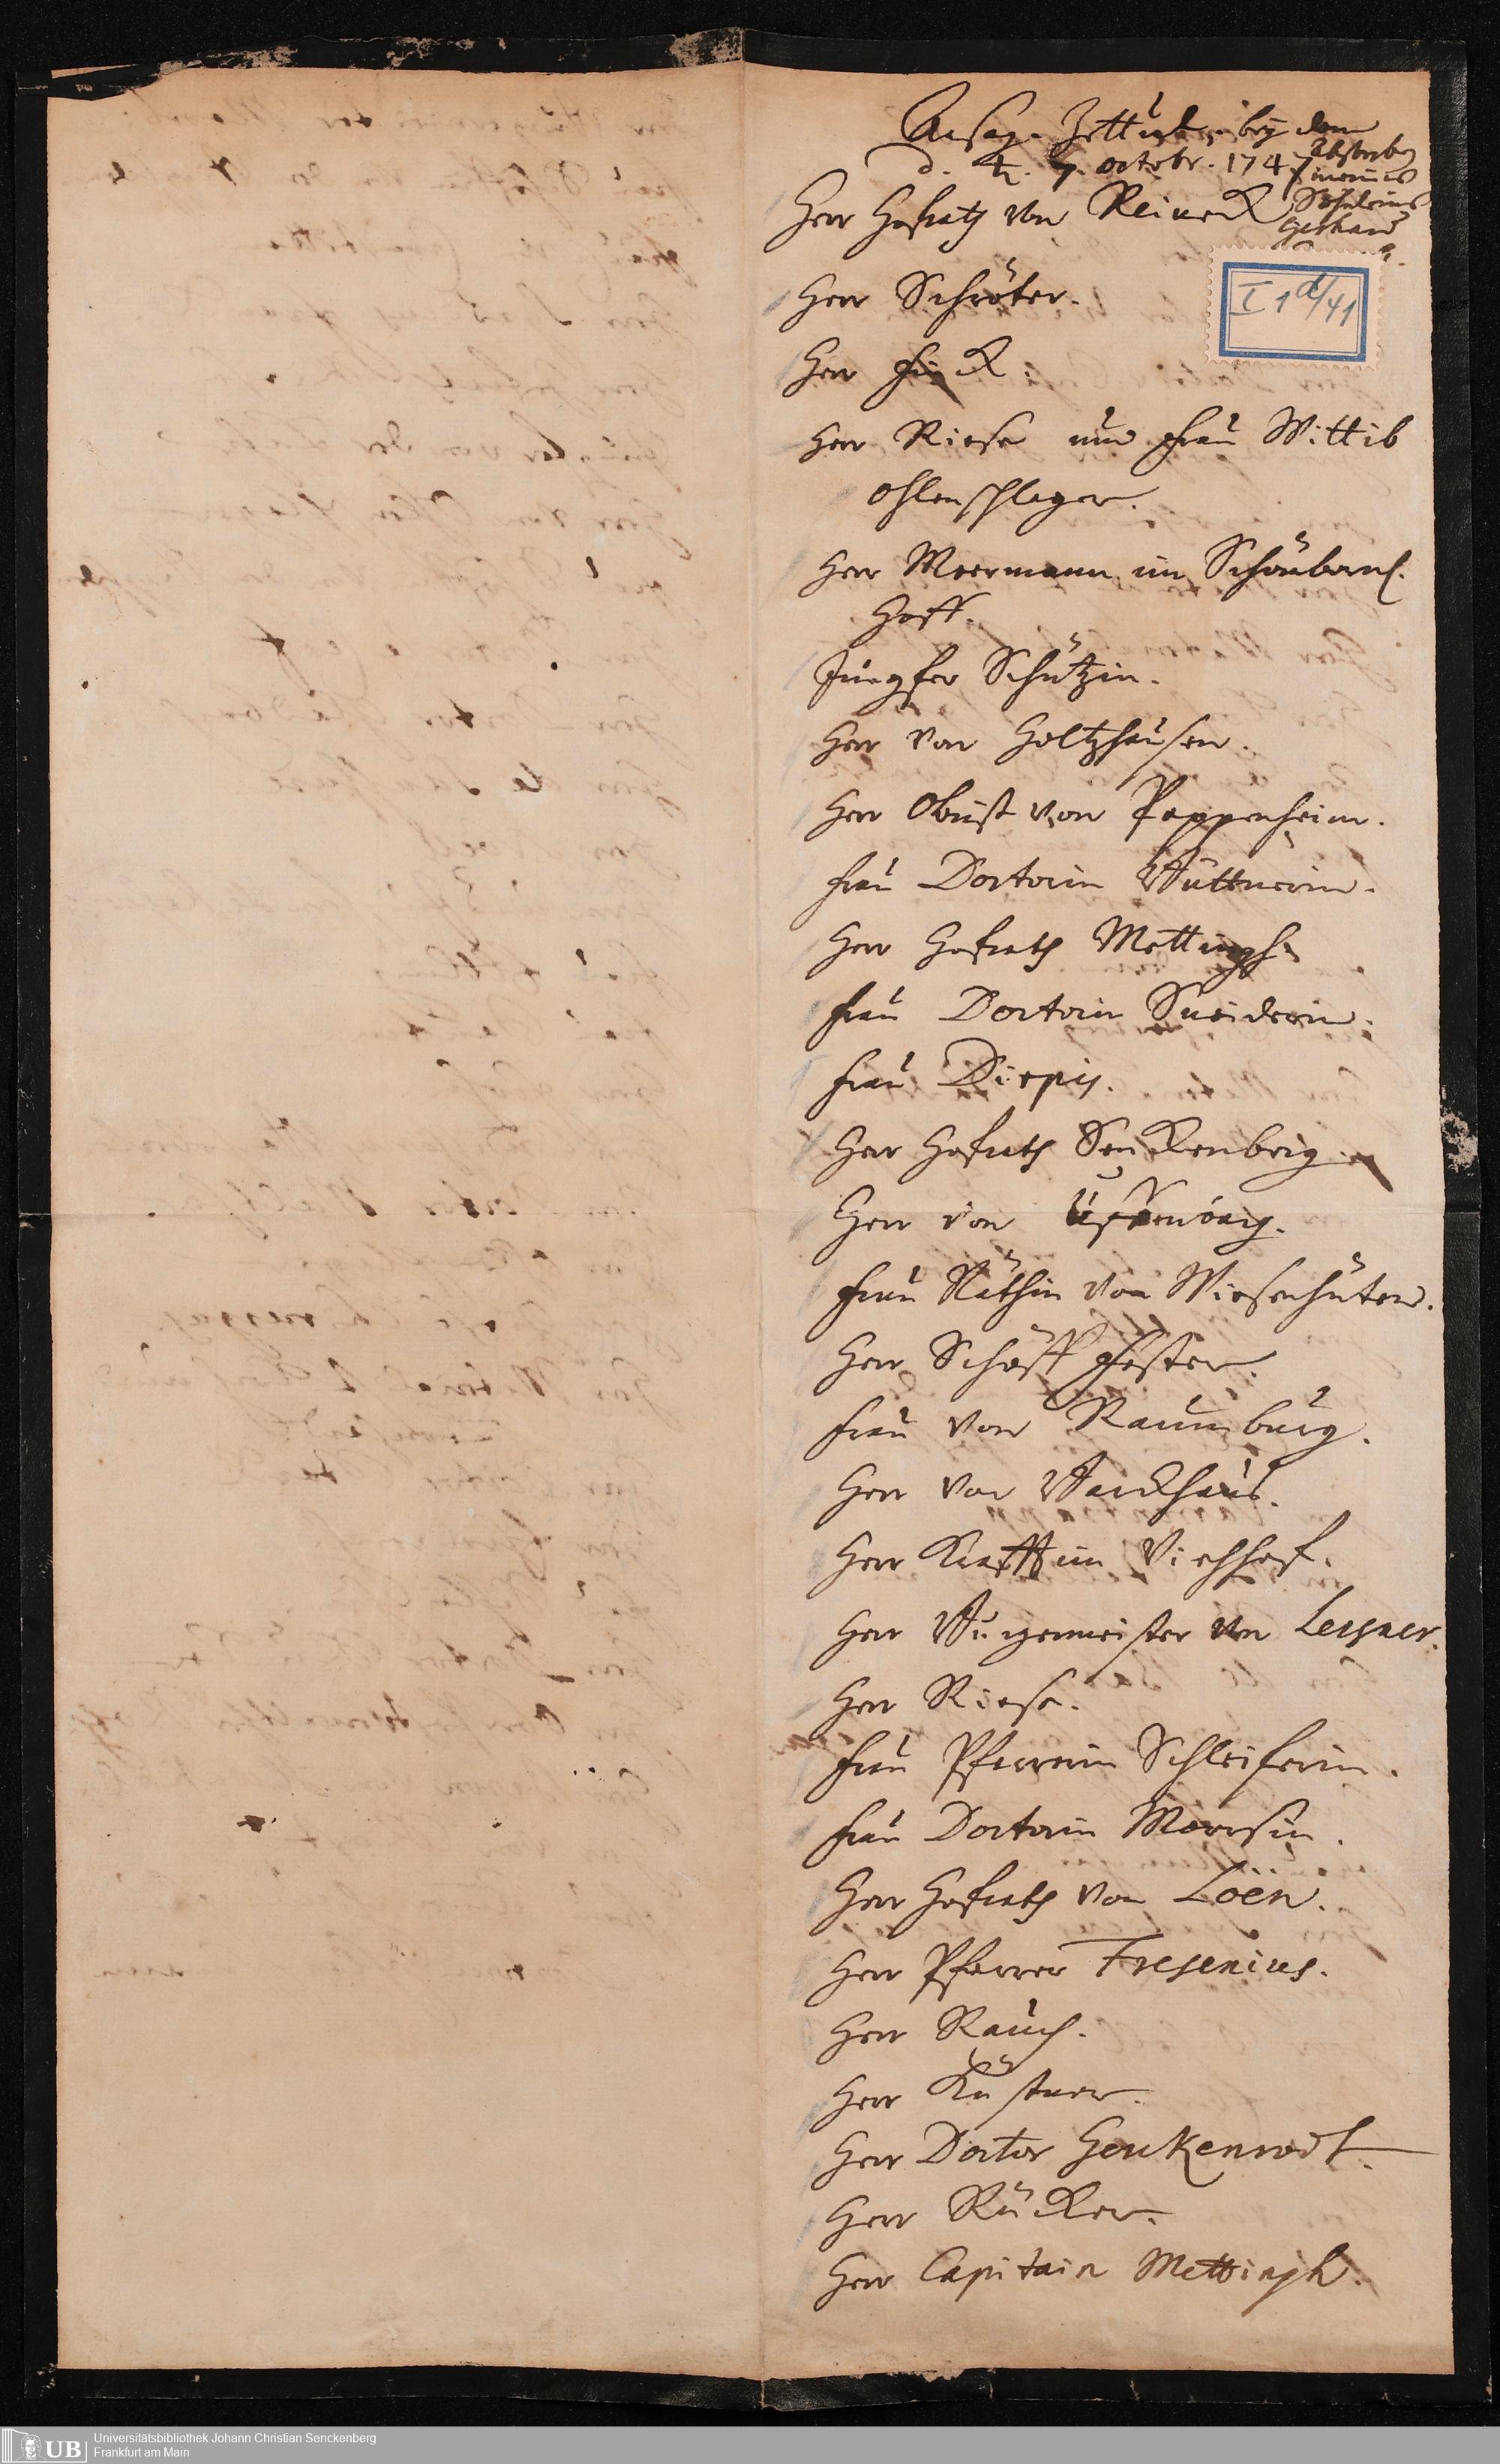 Ansag-Zettul bey dem
Absterben
d. ♄. 7. octobr. 1747
meines
Söhnleins
Gerhard
Herr Hofrath von Reineck
I 1 d/41
Herr Schröter.
Herr Finck.
Herr Riese und Frau Wittib
Ohlenschlager.
Herr Meermann im
Hoff.
Jungfer Schützin.
Herr von Holtzhausen.
Herr Obrist von Pappenheim.
Frau Doctorin Büttnerin.
Herr Hofrath Mettingh.
Frau Doctorin Sneiderin.
Frau
Herr Hofrath Senckenberg.
Herr von Uffenbach.
Frau Räthin von Wiesenhüten.
Herr Schöff Fester.
Frau von Raumburg.
Herr von Barckhaus.
Herr Krafft im Viehhof.
Herr Burgermeister von Lersner.
Herr Riese.
Frau Pfarrerin Schleiferin.
Frau Doctorin Moorsin.
Herr Hofrath von Löen.
Herr Pfarrer Fresenius.
Herr Rauch.
Herr Küstner.
Herr Doctor
Herr Rücker.
Herr Capitain Mettingh.
UB
Universitätsbibliothek Johann Christian Senckenberg
Frankfurt am Main